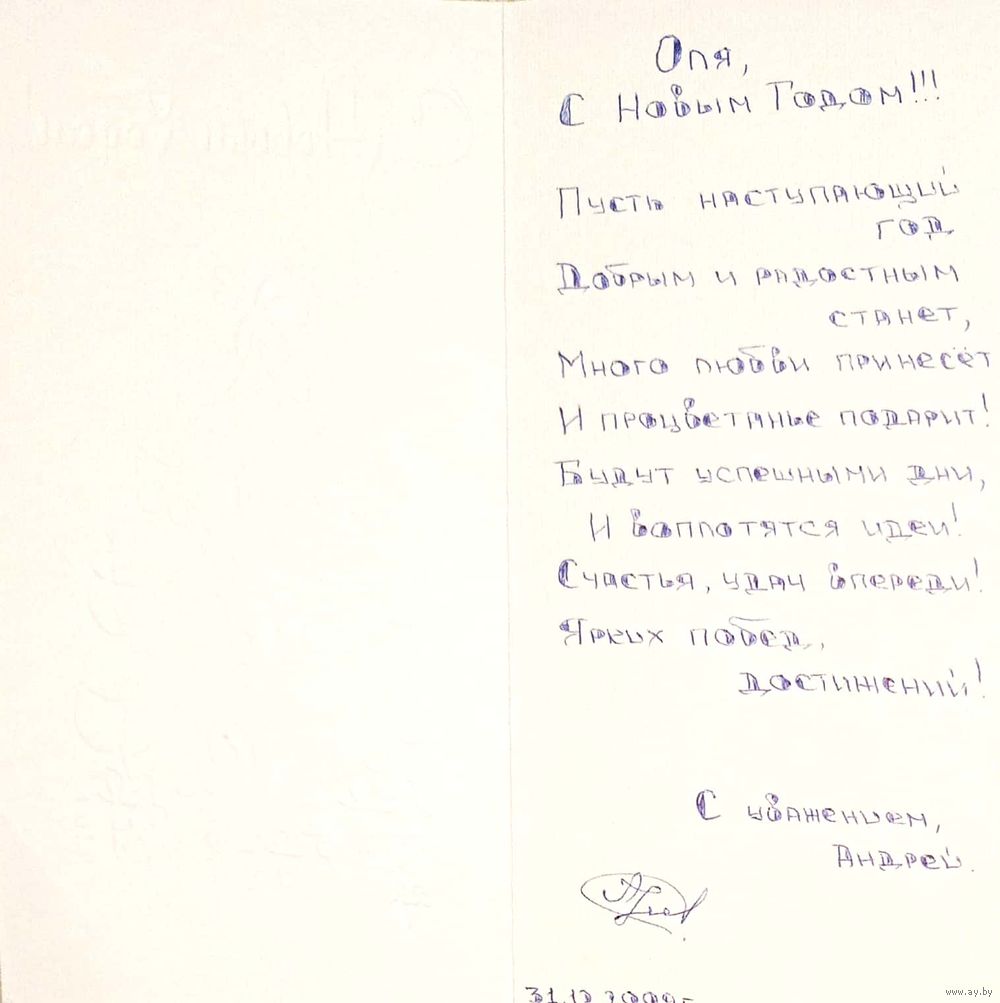 Оля,
С Новым Годом!!!
Пусть наступающий
год
Добрым и радостным
станет,
Много любви принесёт
И процветанье подарит!
Будут успешными дни,
И воплотятся идеи!
Счастья, удач впереди!
Ярких побед,
достижений!
С уважением,
Андрей.
www.ay.by